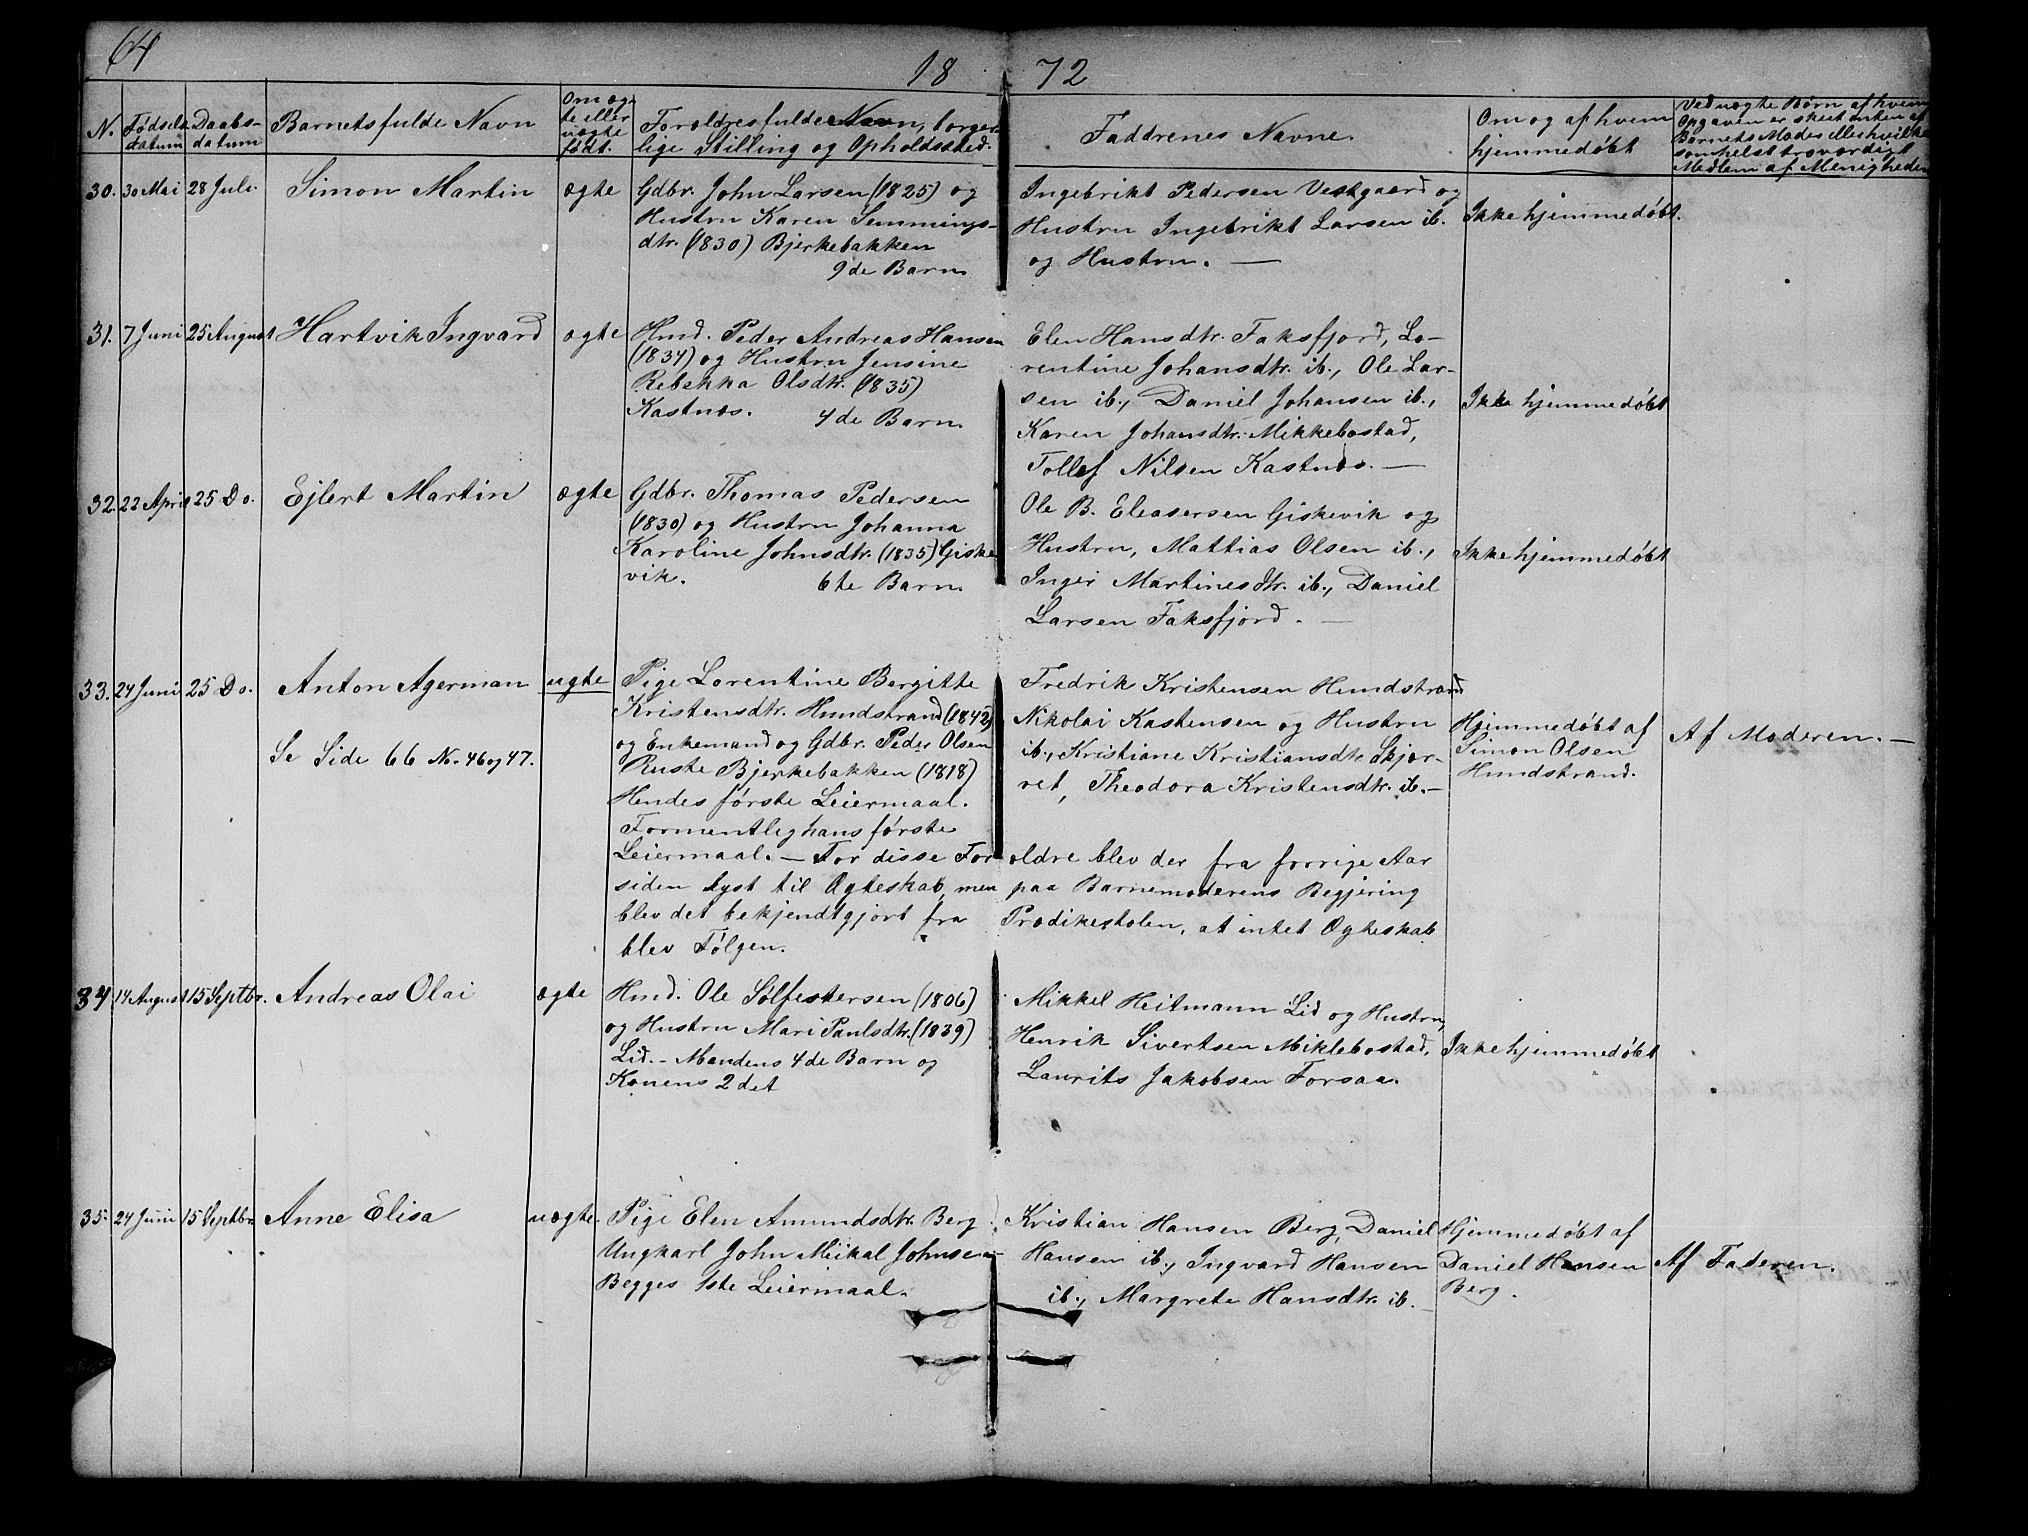 64
18 72
N. Fødsels datum Daabs- datum Barnets fulde Navn Om æg- te eller uægte født. Forældres fulde Navn, borger- lige Stilling og Opholdssted. Faddrenes Navne. Om og af hvem hjemmedøbt Ved uægte Børn af hvem Opgaven er skeet enten af Barnets Moder eller hvilket somhelst troværdigt Medlem af Menigheden
30. 30 Mai 28 Juli. Simon Martin ægte Gdbr. John Larsen (1825) og Ingebrikt Pedersen Vestgaard og
Hustru Karen Semmings- Hustru Ingebrikt Larsen ib. Ikke hjemmedøbt.
dtr. (1830) Bjerkebakken og Hustru. —
9de Barn.
31. 7 Juni 25 August Hartvik Ingvard ægte Hmd. Peder Andreas Hansen Elen Hansdtr. Faksfjord, Lo-
(1834) og Hustru Jensine rentine Johansdtr. ib., Ole Lar-
Rebekka Olsdtr. (1835) sen ib., Daniel Johansen ib., Ikke hjemmedøbt
Kastnæs. 4de Barn. Karen Johansdtr. Mikkebostad,
Tollef Nilsen Kastnæs. —
32. 22 April 25 Do. Ejlert Martin ægte Gdbr. Thomas Pedersen Ole B. Eleasersen Giskevik og
(1830) og Hustru Johanna Hustru, Mattias Olsen ib., Ikke hjemmedøbt
Karoline Johnsdtr. (1835) Giske Inger Martinesdtr. ib., Daniel
vik. 6te Barn. Larsen Faksfjord. —
33. 24 Juni 25 Do. Anton Agerman uægte Pige Lorentine Bergitte Fredrik Kristensen Hundstrand
Kristensdtr. Hundstrand (1842) Nikolai Kastensen og Hustru Hjemmedøbt af
Se Side 66 No. 46 og 47. og Enkemand og Gdbr. Peder Olsen ib., Kristiane Kristiansdtr. Skjær- Simon Olsen Af Moderen. —
Ruste Bjerkebakken (1818) ret, Theodora Kristensdtr. ib. — Hundstrand.
Hendes første Leiermaal.
Formentlig hans første
Leiermaal. — For disse For ældre blev der fra forrige Aar
siden lyst til Ægteskab, men paa Barnemoderens Begjering
blev det bekjendtgjort fra Prædikestolen, at intet Ægteskab
blev Følgen.
34 14 August 15 Septbr. Andreas Olai ægte Hmd. Ole Sølfestersen (1806) Mikkel Heitmann Lid og Hustru,
og Hustru Mari Paulsdtr. (1839) Henrik Sivertsen Miklebostad, Ikke hjemmedøbt
Lid. — Mandens 4de Barn og Laurits Jakobsen Forsaa.
Konens 2det
35. 24 Juni 15 Septbr Anne Elisa uægte. Pige Elen Amundsdtr. Berg Kristian Hansen Berg, Daniel Hjemmedøbt af
Ungkarl John Mikal Johnsen Hansen ib., Ingvard Hansen Daniel Hansen Af Faderen.
Begges 1ste Leiermaal. ib., Margrete Hansdtr. ib. — Berg.